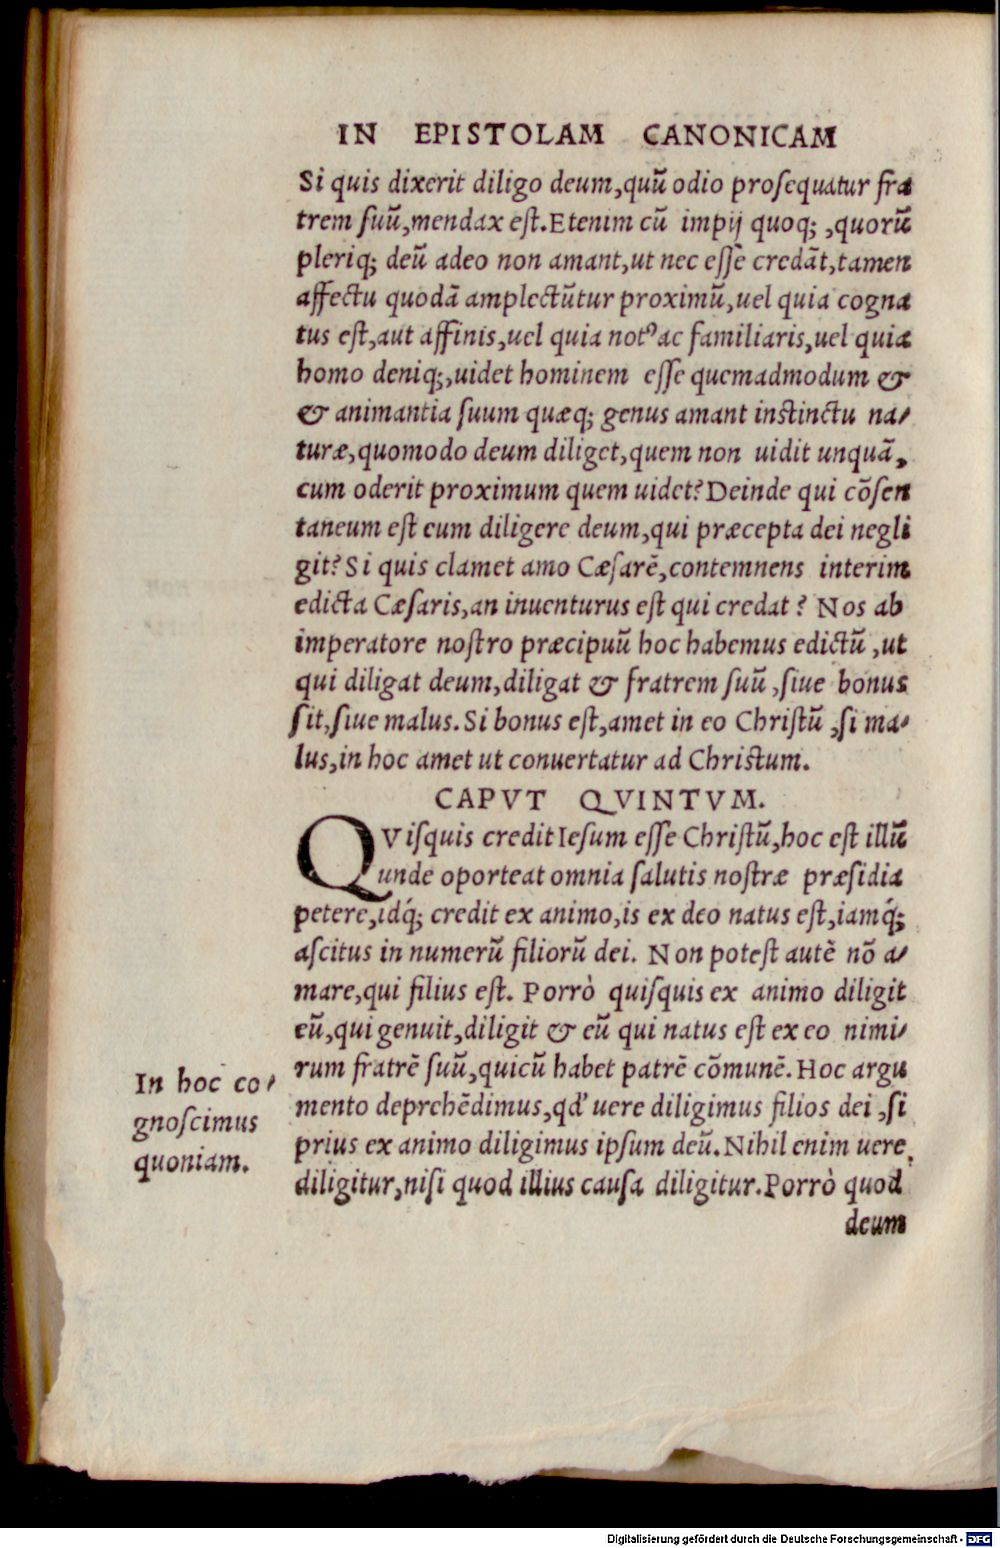 IN EPISTOLAM CANONICAM
Si quis dixerit diligo deum,quũ odio proſequatur fra
trem ſuũ,mendax eſt.Etenim cũ impij quoq; ,quorũ
pleriq; deũ adeo non amant,ut nec eſſe credãt,tamen
affectu quodã amplectũtur proximũ,uel quia cogna
tus eſt,aut affinis,uel quia notꝰ ac familiaris,uel quia
homo deniq;,uidet hominem eſſe quemadmodum &
& animantia ſuum quæq; genus amant inſtinctu na⸗
turæ,quomodo deum diliget,quem non uidit unquã,
cum oderit proximum quem uidet?Deinde qui cõſen
taneum eſt eum diligere deum,qui præcepta dei negli
git?Si quis clamet amo Cæſarẽ,contemnens interim
edicta Cæſaris,an inuenturus eſt qui credat ? Nos ab
imperatore noſtro præcipuũ hoc habemus edictũ ,ut
qui diligat deum,diligat & fratrem ſuũ ,ſiue bonus
ſit,ſiue malus.Si bonus eſt,amet in eo Chriſtũ ,ſi ma⸗
lus,in hoc amet ut conuertatur ad Chriſtum.
CAPVT QVINTVM.
QViſquis credit Ieſum eſſe Chriſtũ,hoc eſt illũ
unde oporteat omnia ſalutis noſtræ præſidia
petere,idq́; credit ex animo,is ex deo natus eſt,iamq́;
aſcitus in numerũ filiorũ dei. Non poteſt autẽ nõ a⸗
mare,qui filius eſt. Porrò quiſquis ex animo diligit
eũ,qui genuit,diligit & eũ qui natus eſt ex eo nimi⸗
rum fratrẽ ſuũ,quicũ habet patrẽ cõmunẽ.Hoc argu
mento deprehẽdimus,qd' uere diligimus filios dei ,ſi
prius ex animo diligimus ipſum deũ.Nihil enim uere
diligitur,niſi quod illius cauſa diligitur.Porrò quod
deum
In hoc co⸗
gnoſcimus
quoniam.
Digitalisierung gefördert durch die Deutsche Forschungsgemeinschaft - DFG